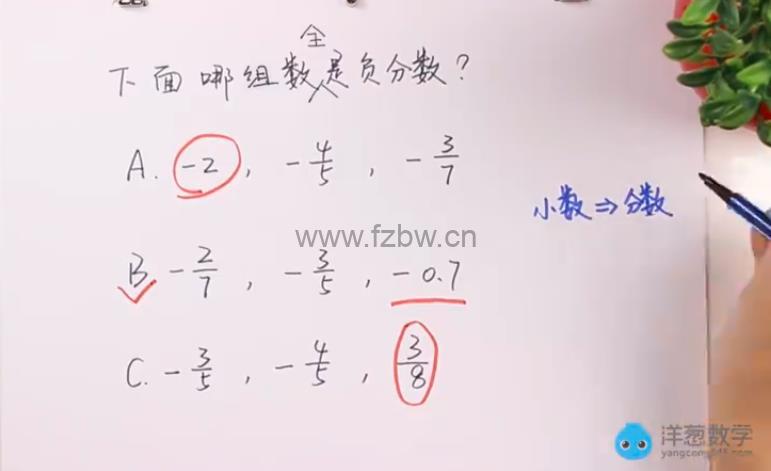 下面哪组数全是负分数？
A. -2, -4/5, -3/7
小数⇒分数
www.fzbw.cn
B -2/7, -3/5, -0.7
C. -3/5, -4/5, 3/8
洋葱数学